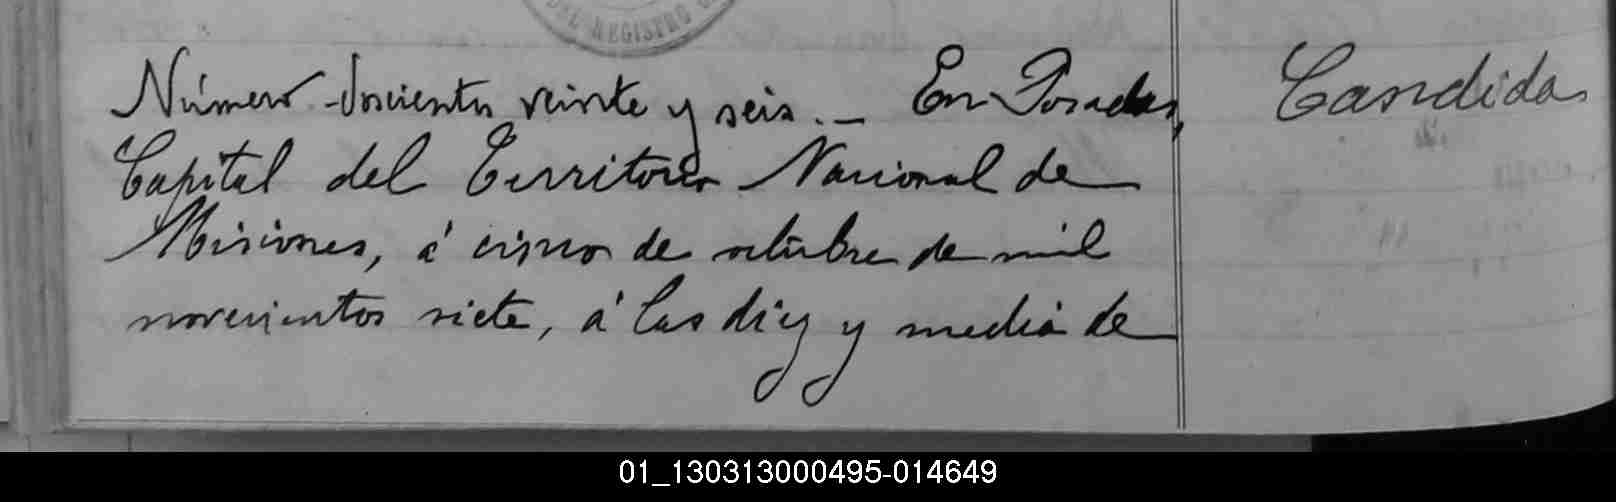 DEL REGISTRO
Número doscientos veinte y seis.— En Posadas,
Capital del Territorio Nacional de
Misiones, á cinco de octubre de mil
novecientos siete, á las diez y media de
Candida
01_130313000495-014649